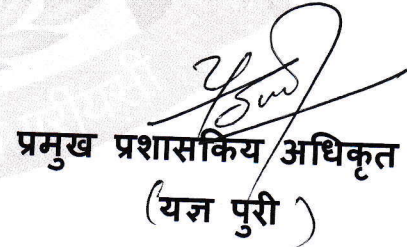 प्रमुख प्रशासकिय अधिकृत
(यज्ञ पुरी)